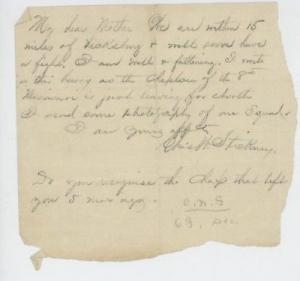 My dear Mother We are within 15
miles of Vicksburg & will soon have
a fight. I am well & fattening. I write
in this hurry as the Chaplain of the 8th
Missouri is just leaving for
I send some photographs of our Squad &
I am going off
Chas W Stickney
Do you recognise the chap that left
you 5 mos ago.
C.W.S
63,